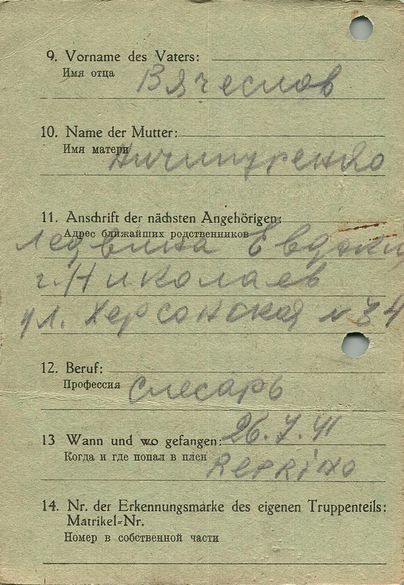 9. Vorname des Vaters:
Имя отца
Вячеслав
10. Name der Mutter:
Имя матери
Ничипуренко
11. Anschrift der nächsten Angehörigen:
Адрес ближайших родственников
Ледвина Евдокии
г. Николаев
ул. Херсонская № 34
12. Beruf:
Профессия
слесарь
13 Wann und wo gefangen:
26.7.41
Когда и где попал в плен
14. Nr. der Erkennungsmarke des eigenen Truppenteils:
Matrikel-Nr.
Номер в собственной части